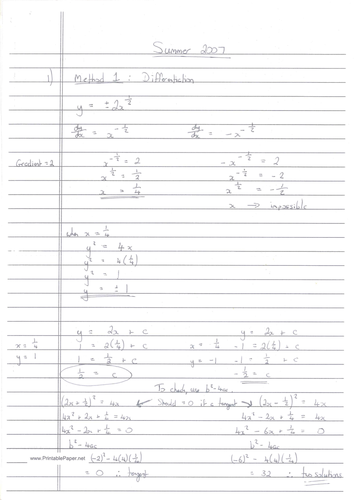 Summer 2007
1) Method 1 : Differentiation
y = ± 2x^½
dy/dx = x^-½    dy/dx = -x^-½
Gradient = 2    x^-½ = 2    -x^-½ = 2
x^½ = ½    x^-½ = -2
x = ¼    x^½ = -½
x → impossible
when x = ¼
y² = 4x
y² = 4(¼)
y² = 1
y = ± 1
y = 2x + c    y = 2x + c
x = ¼    1 = 2(¼) + c    x = ¼    -1 = 2(¼) + c
y = 1    1 = ½ + c    y = -1    -1 = ½ + c
½ = c    -½ = c
To check, use b²-4ac
(2x + ½)² = 4x    Should = 0 if a tangent    (2x - ½)² = 4x
4x² + 2x + ¼ = 4x    4x² - 2x + ¼ = 4x
4x² - 2x + ¼ = 0    4x² - 6x + ¼ = 0
b² - 4ac    b² - 4ac
(-2)² - 4(4)(¼)    (-6)² - 4(4)(¼)
= 0 ∴ tangent    = 32 ∴ two solutions
www.PrintablePaper.net